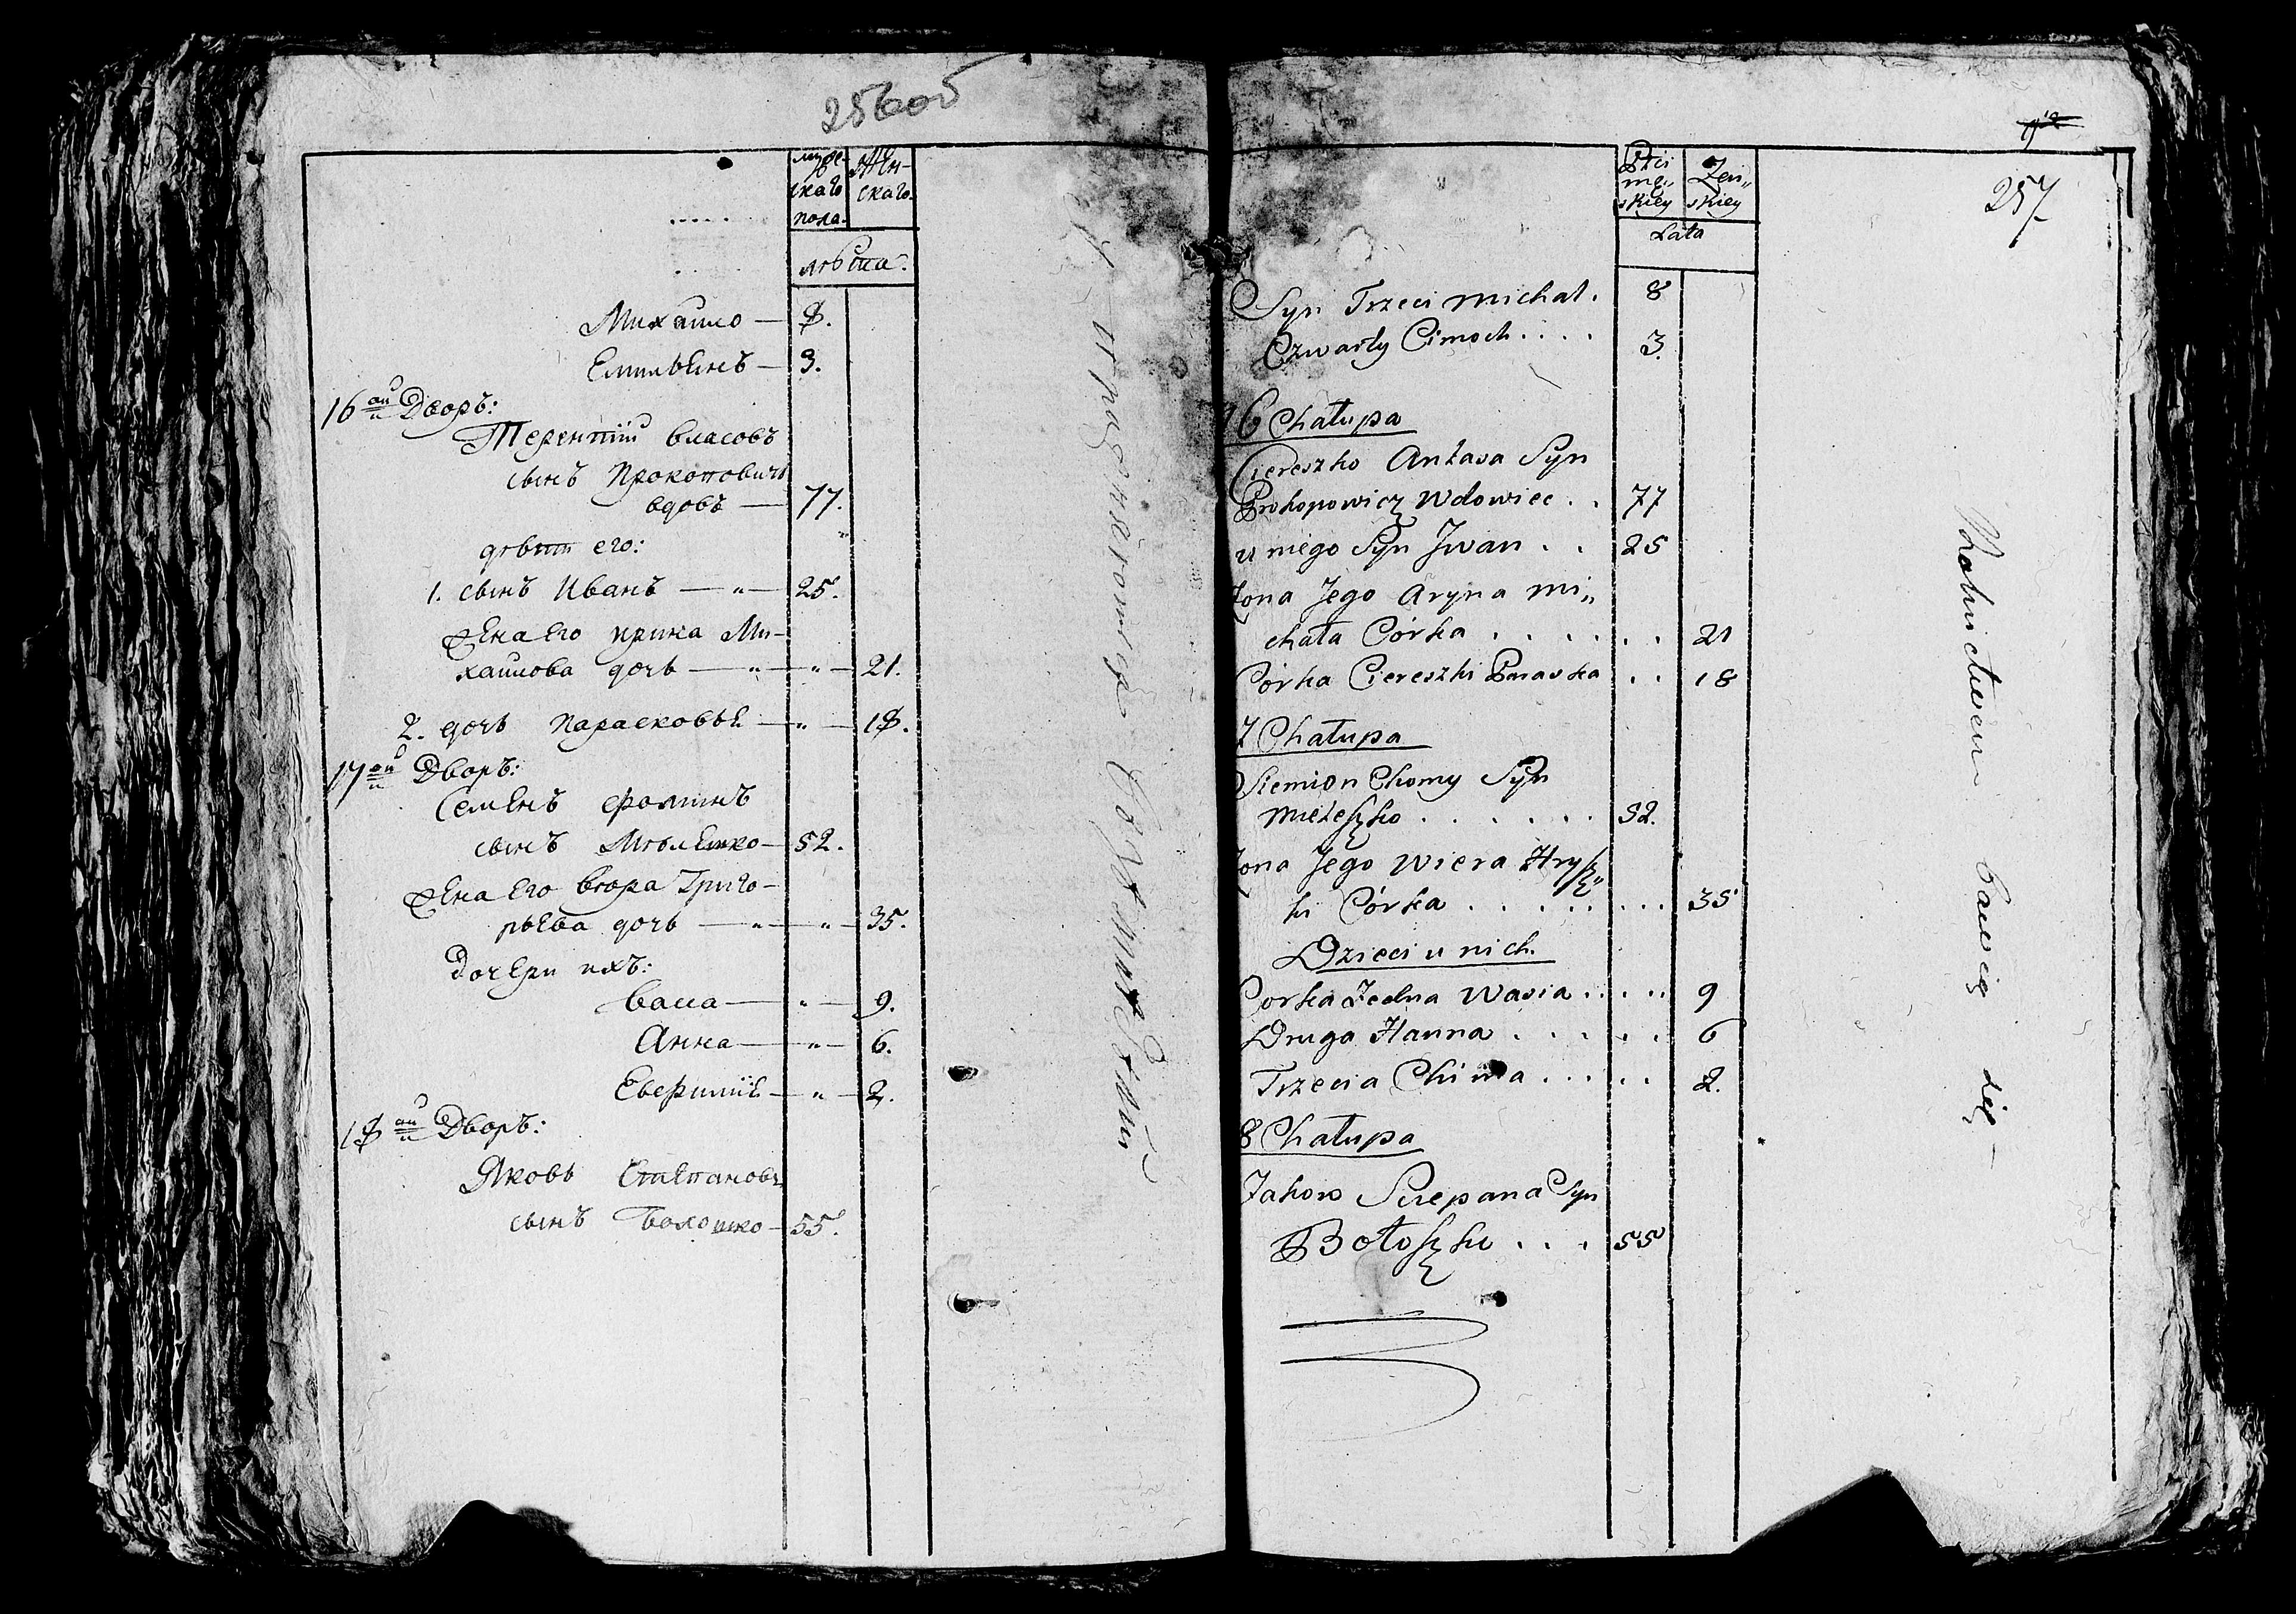 256 об
муже-
скаго
пола.
жен-
скаго.
лѣта.
Михаило — 8.
Емильянъ — 3.
16 ои Дворъ:
Терентіи власовъ
сынъ Прокоповичъ
вдовъ — 77.
дѣти его:
1. сынъ Иванъ — „ — 25.
жена его ирина Ми-
хаилова дочь — „ — „ — 21.
2. дочь Парасковья — „ — 18.
17 ои Дворъ:
Семенъ Фоминъ
сынъ Мѣлешко — 52.
жена его вѣра Григо-
рьева дочь — „ — „ — 35.
дочери ихъ:
Васса — „ — 9.
Анна — „ — 6.
Евфимія — „ — 2.
18 ои Дворъ:
Яковъ Степановъ
сынъ Болошко — 55.
257
Płci
mę„
skiey
Żeń„
skiey
Lata
Syn Trzeci Michał . 8
Czwarty Cimoch . . . . 3.
16 Chałupa
Ciereszko Antasa Syn
Prokopowicz Wdowiec . . 77
u niego Syn Jwan . . 25
Żona Jego Aryna Mi„
chała Córka . . . . . . 21
Córka Ciereszki Paraska . . 18
7 Chałupa
Siemion Chomy Syn
Mieleszko . . . . . . 52.
Żona Jego Wiera Hrysz„
ki Córka . . . . . . . . 35
Dzieci u nich.
Corka Jedna Wasia . . . . 9
Druga Hanna . . . . . . 6
Trzecia Chima . . . . . 2.
8 Chałupa
Jakow Sciepana Syn
Bołoszko . . . 55